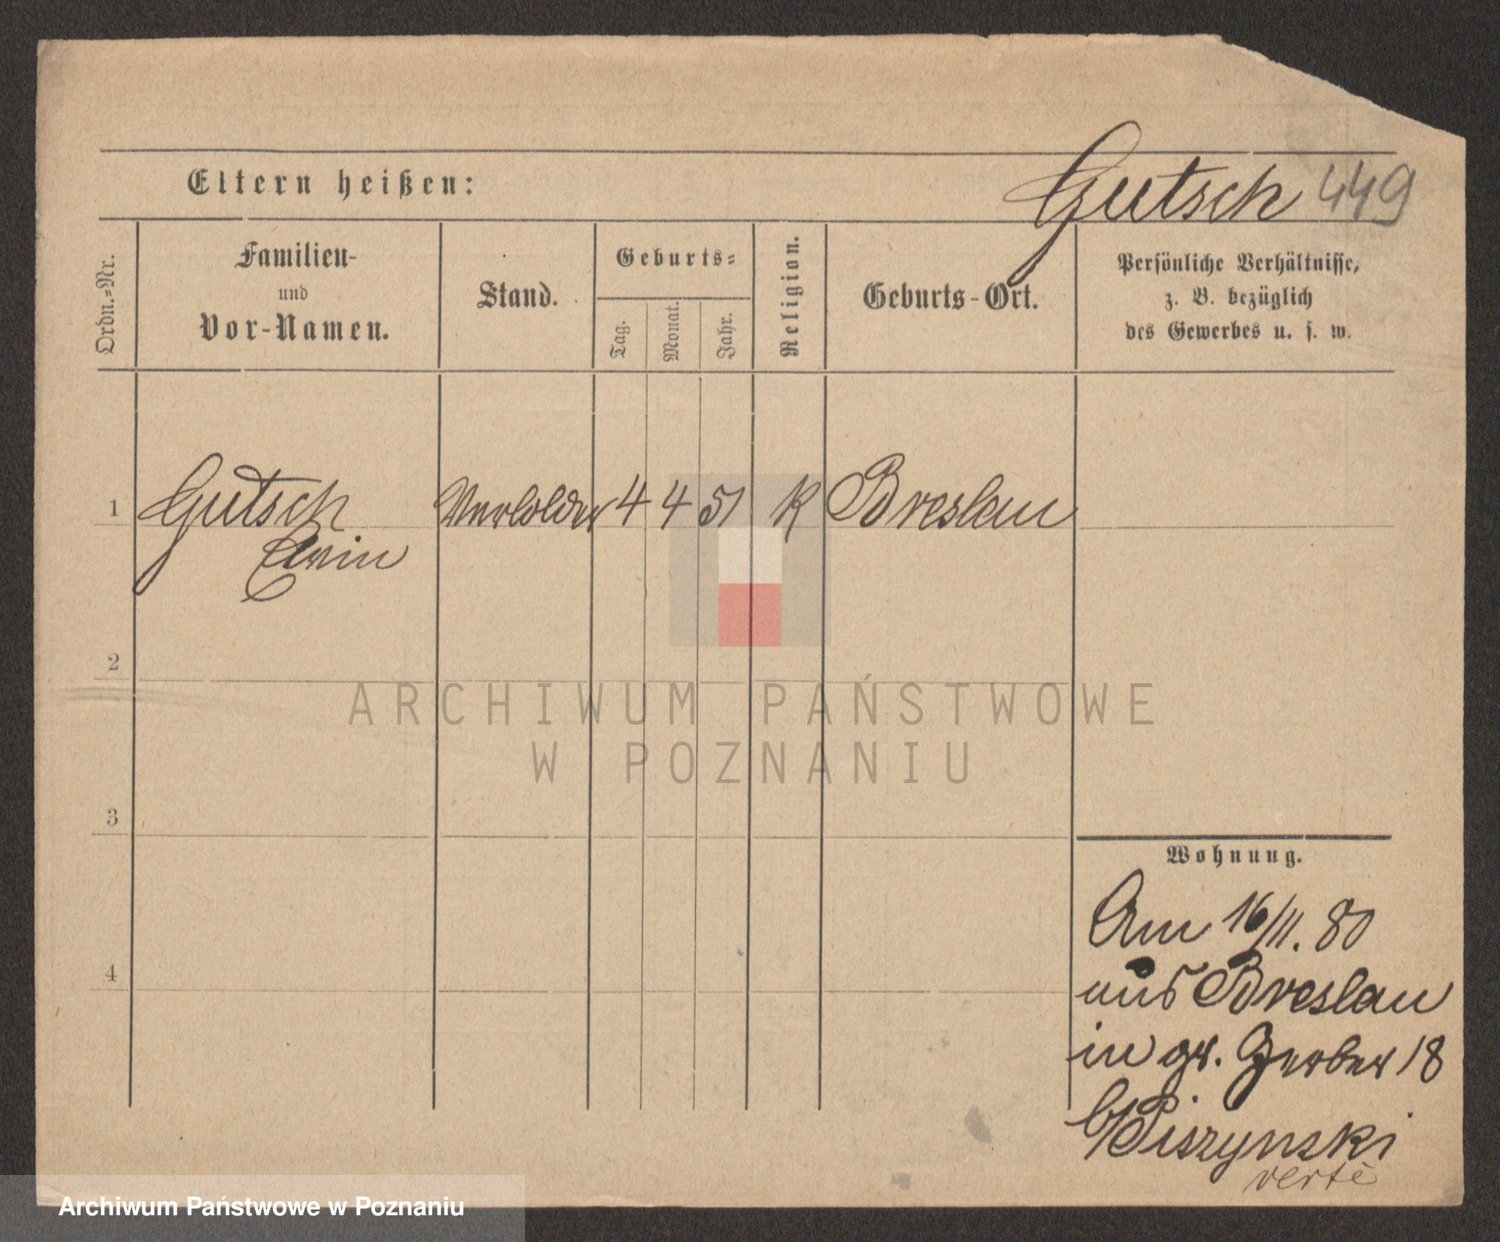 Eltern heißen:
Gutsch 449
Ordn.=Nr.
Familien-
und
Vor-Namen.
Stand.
Geburts=
Tag.
Monat.
Jahr.
Religion.
Geburts-Ort.
Persönliche Verhältnisse,
z. B. bezüglich
des Gewerbes u. s. w.
1 Gutsch 4 4 51 K Breslau
2
ARCHIWUM PAŃSTWOWE
W POZNANIU
3
Wohnung.
Am 16/11. 80
4
aus Breslau
in gr. Gerber 18
b/Piszynski
verte
Archiwum Państwowe w Poznaniu